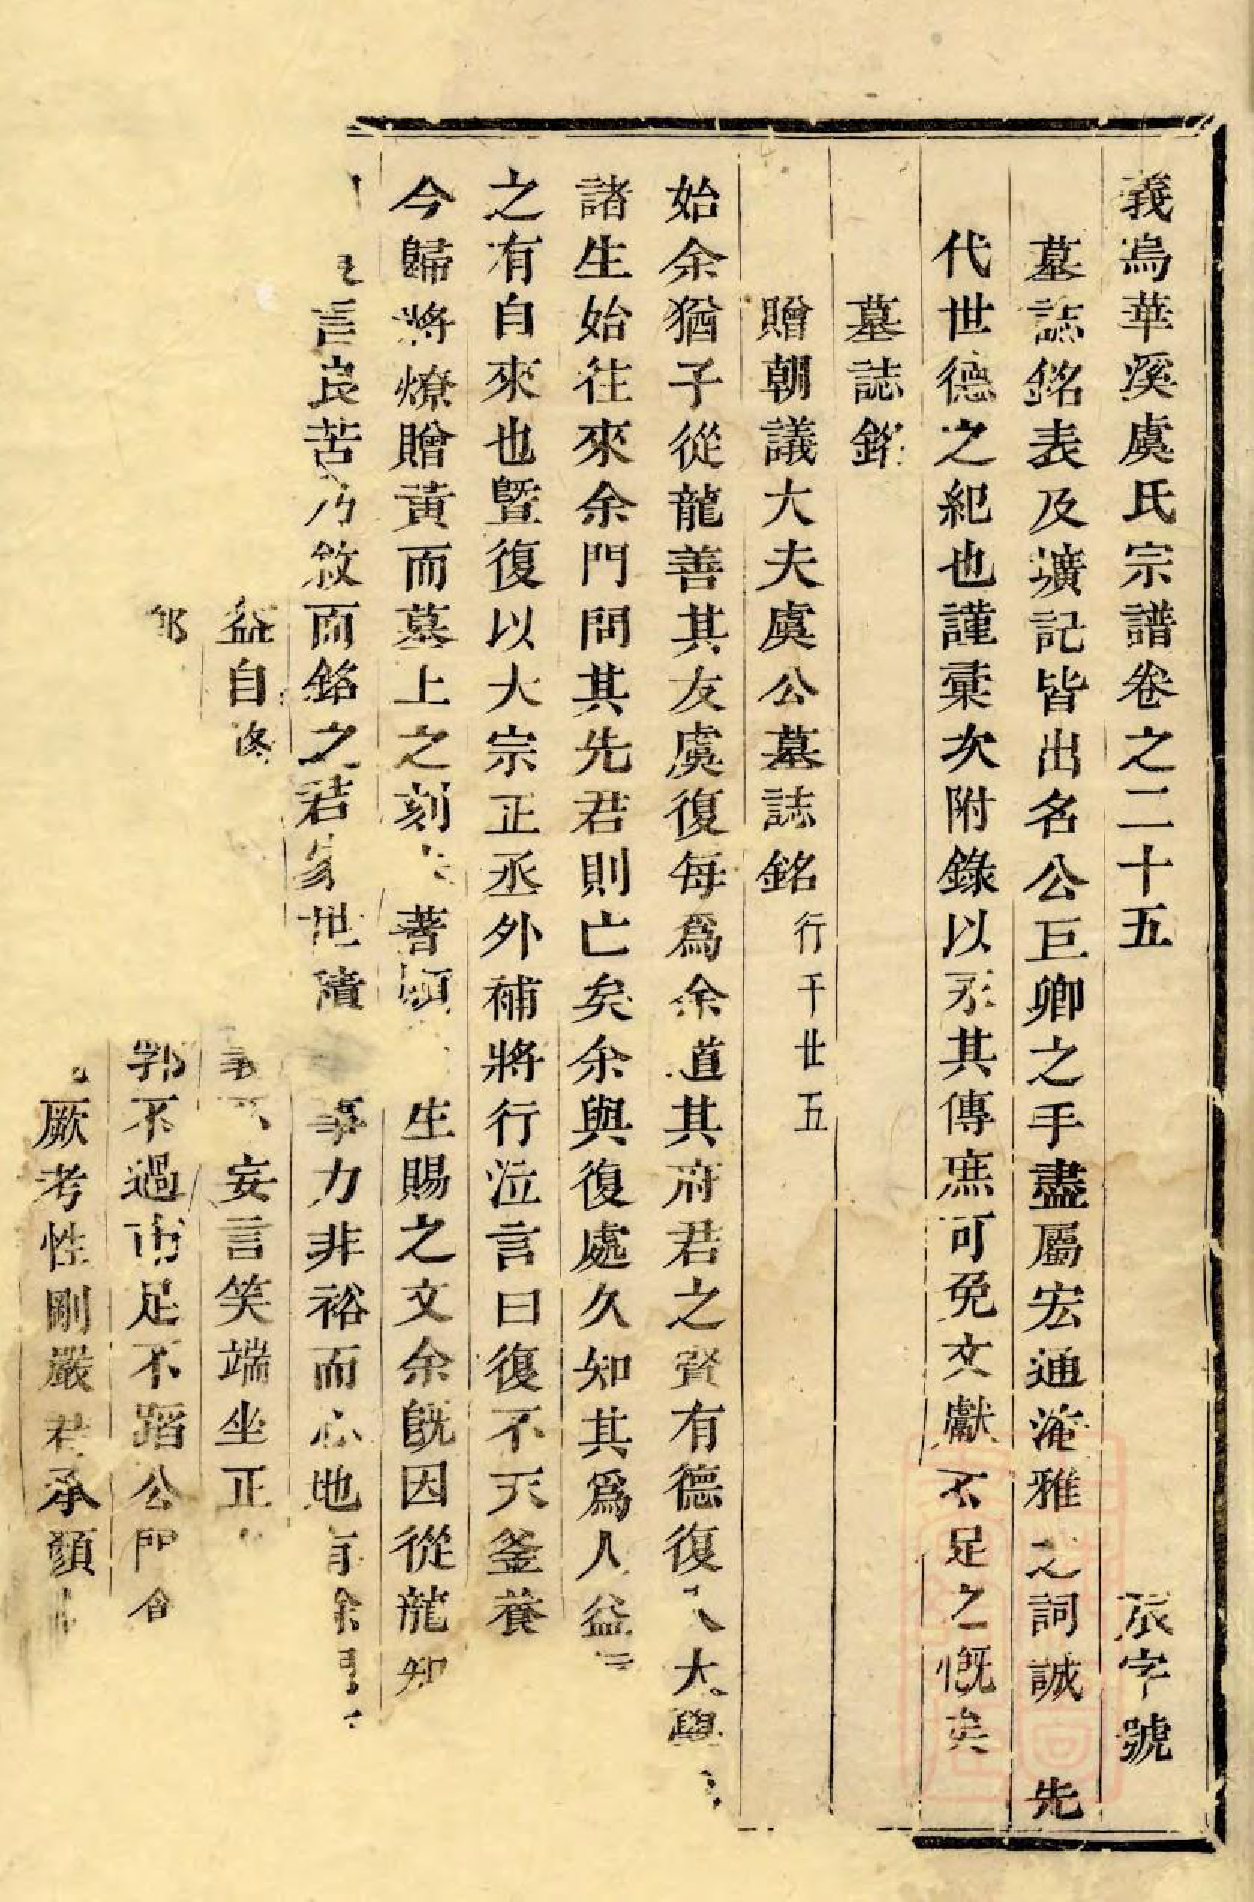 義烏華溪虞氏宗譜卷之二十五 辰字號
墓誌銘表及壙記皆出名公巨卿之手盡屬宏通淹雅之詞誠 先
代世德之紀也謹彙次附錄以永其傳庶可免文獻不足之慨矣
墓誌銘
贈朝議大夫虞公墓誌銘 行千廿五
始余猶子從龍善其友虞復每爲余道其府君之賢有德復入大學
諸生始往來余門問其先君則亡矣余與復處久知其爲人益
之有自來也暨復以大宗正丞外補將行泣言曰復不天釜養
今歸將燎贈黃而墓上之刻 著願 生賜之文余旣因從龍知
言良苦乃敘而銘之君家世積 事力非裕而心地有餘
益自 妄言笑端坐正
郭不過市足不蹈公門
厥考性剛嚴君承顏